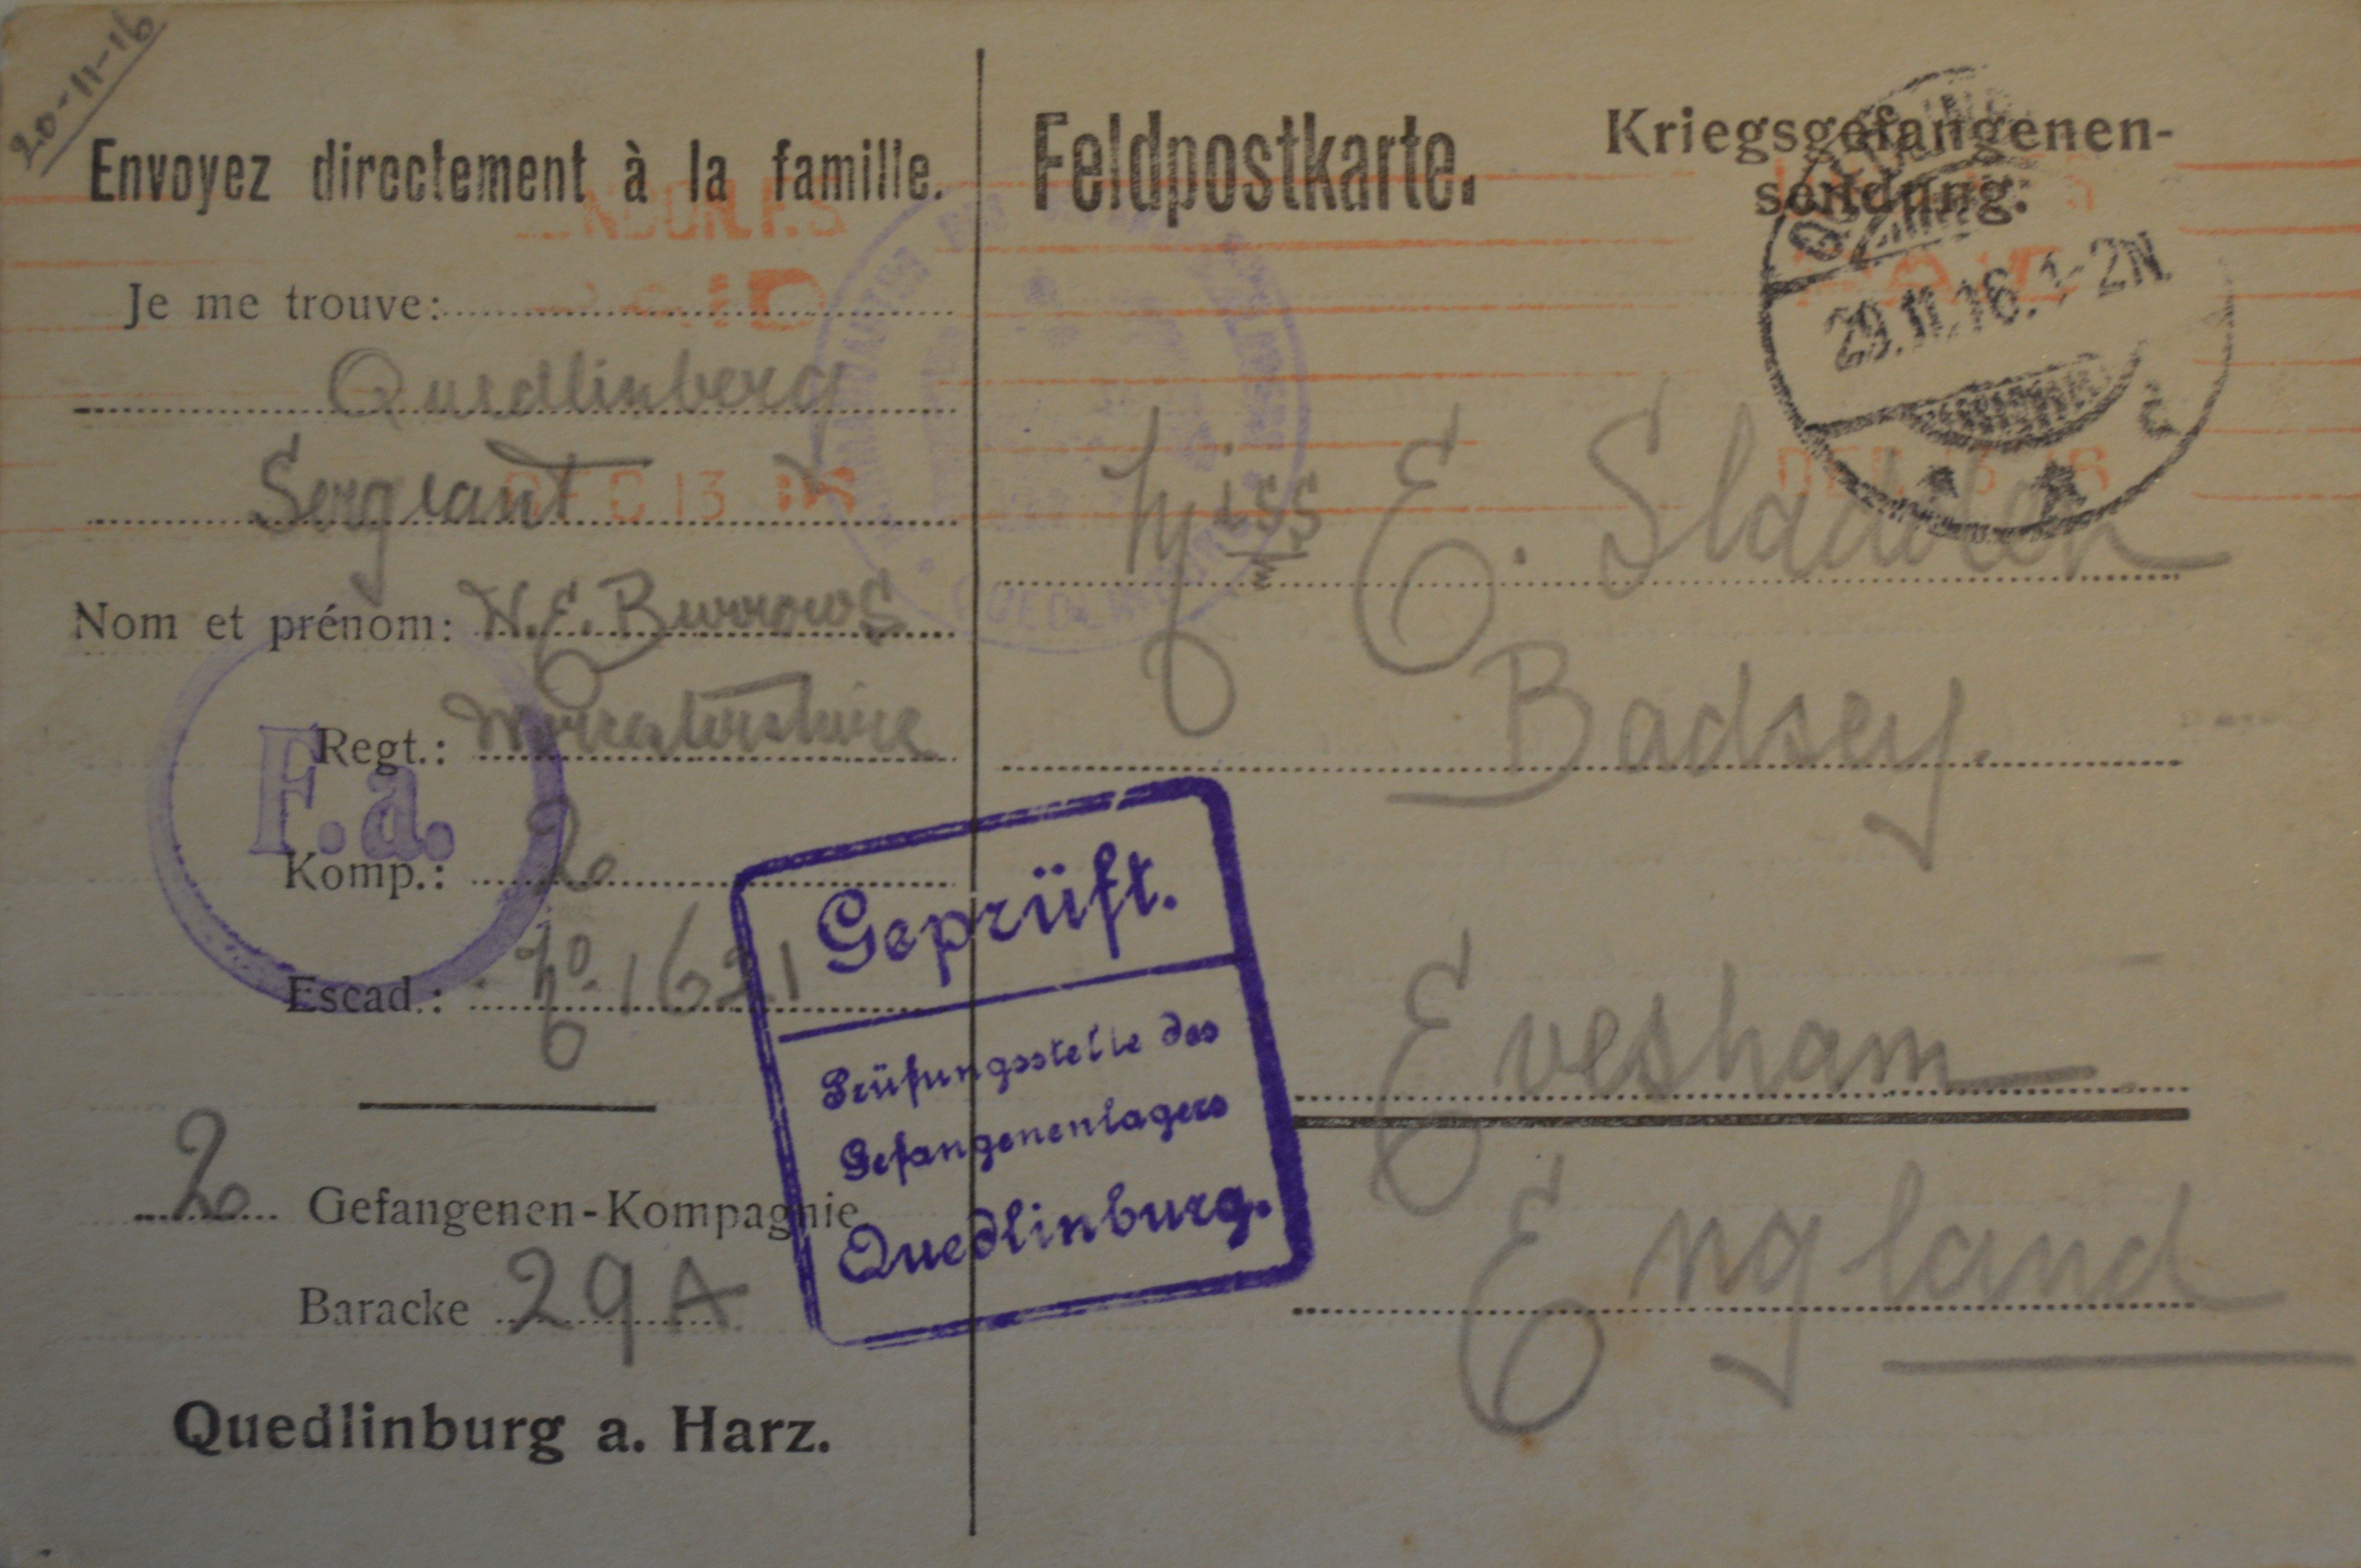 20-11-16
Envoyez directement à la famille.
Je me trouve:
Quedlinberg
Sergeant
Nom et prénom: W.E. Burrows
Regt.: Worcestershire
Komp.: 2
Escad.: No. 1621
2 Gefangenen-Kompagnie
Baracke 29A
Quedlinburg a. Harz.
Feldpostkarte.
Kriegsgefangenen-
sendung.
29.11.16. 1-2N.
Miss E. Sladden
Badsey.
Evesham
England
F.a.
Geprüft.
Prüfungsstelle des
Gefangenenlagers
Quedlinburg.
PAID
DEC 13 16